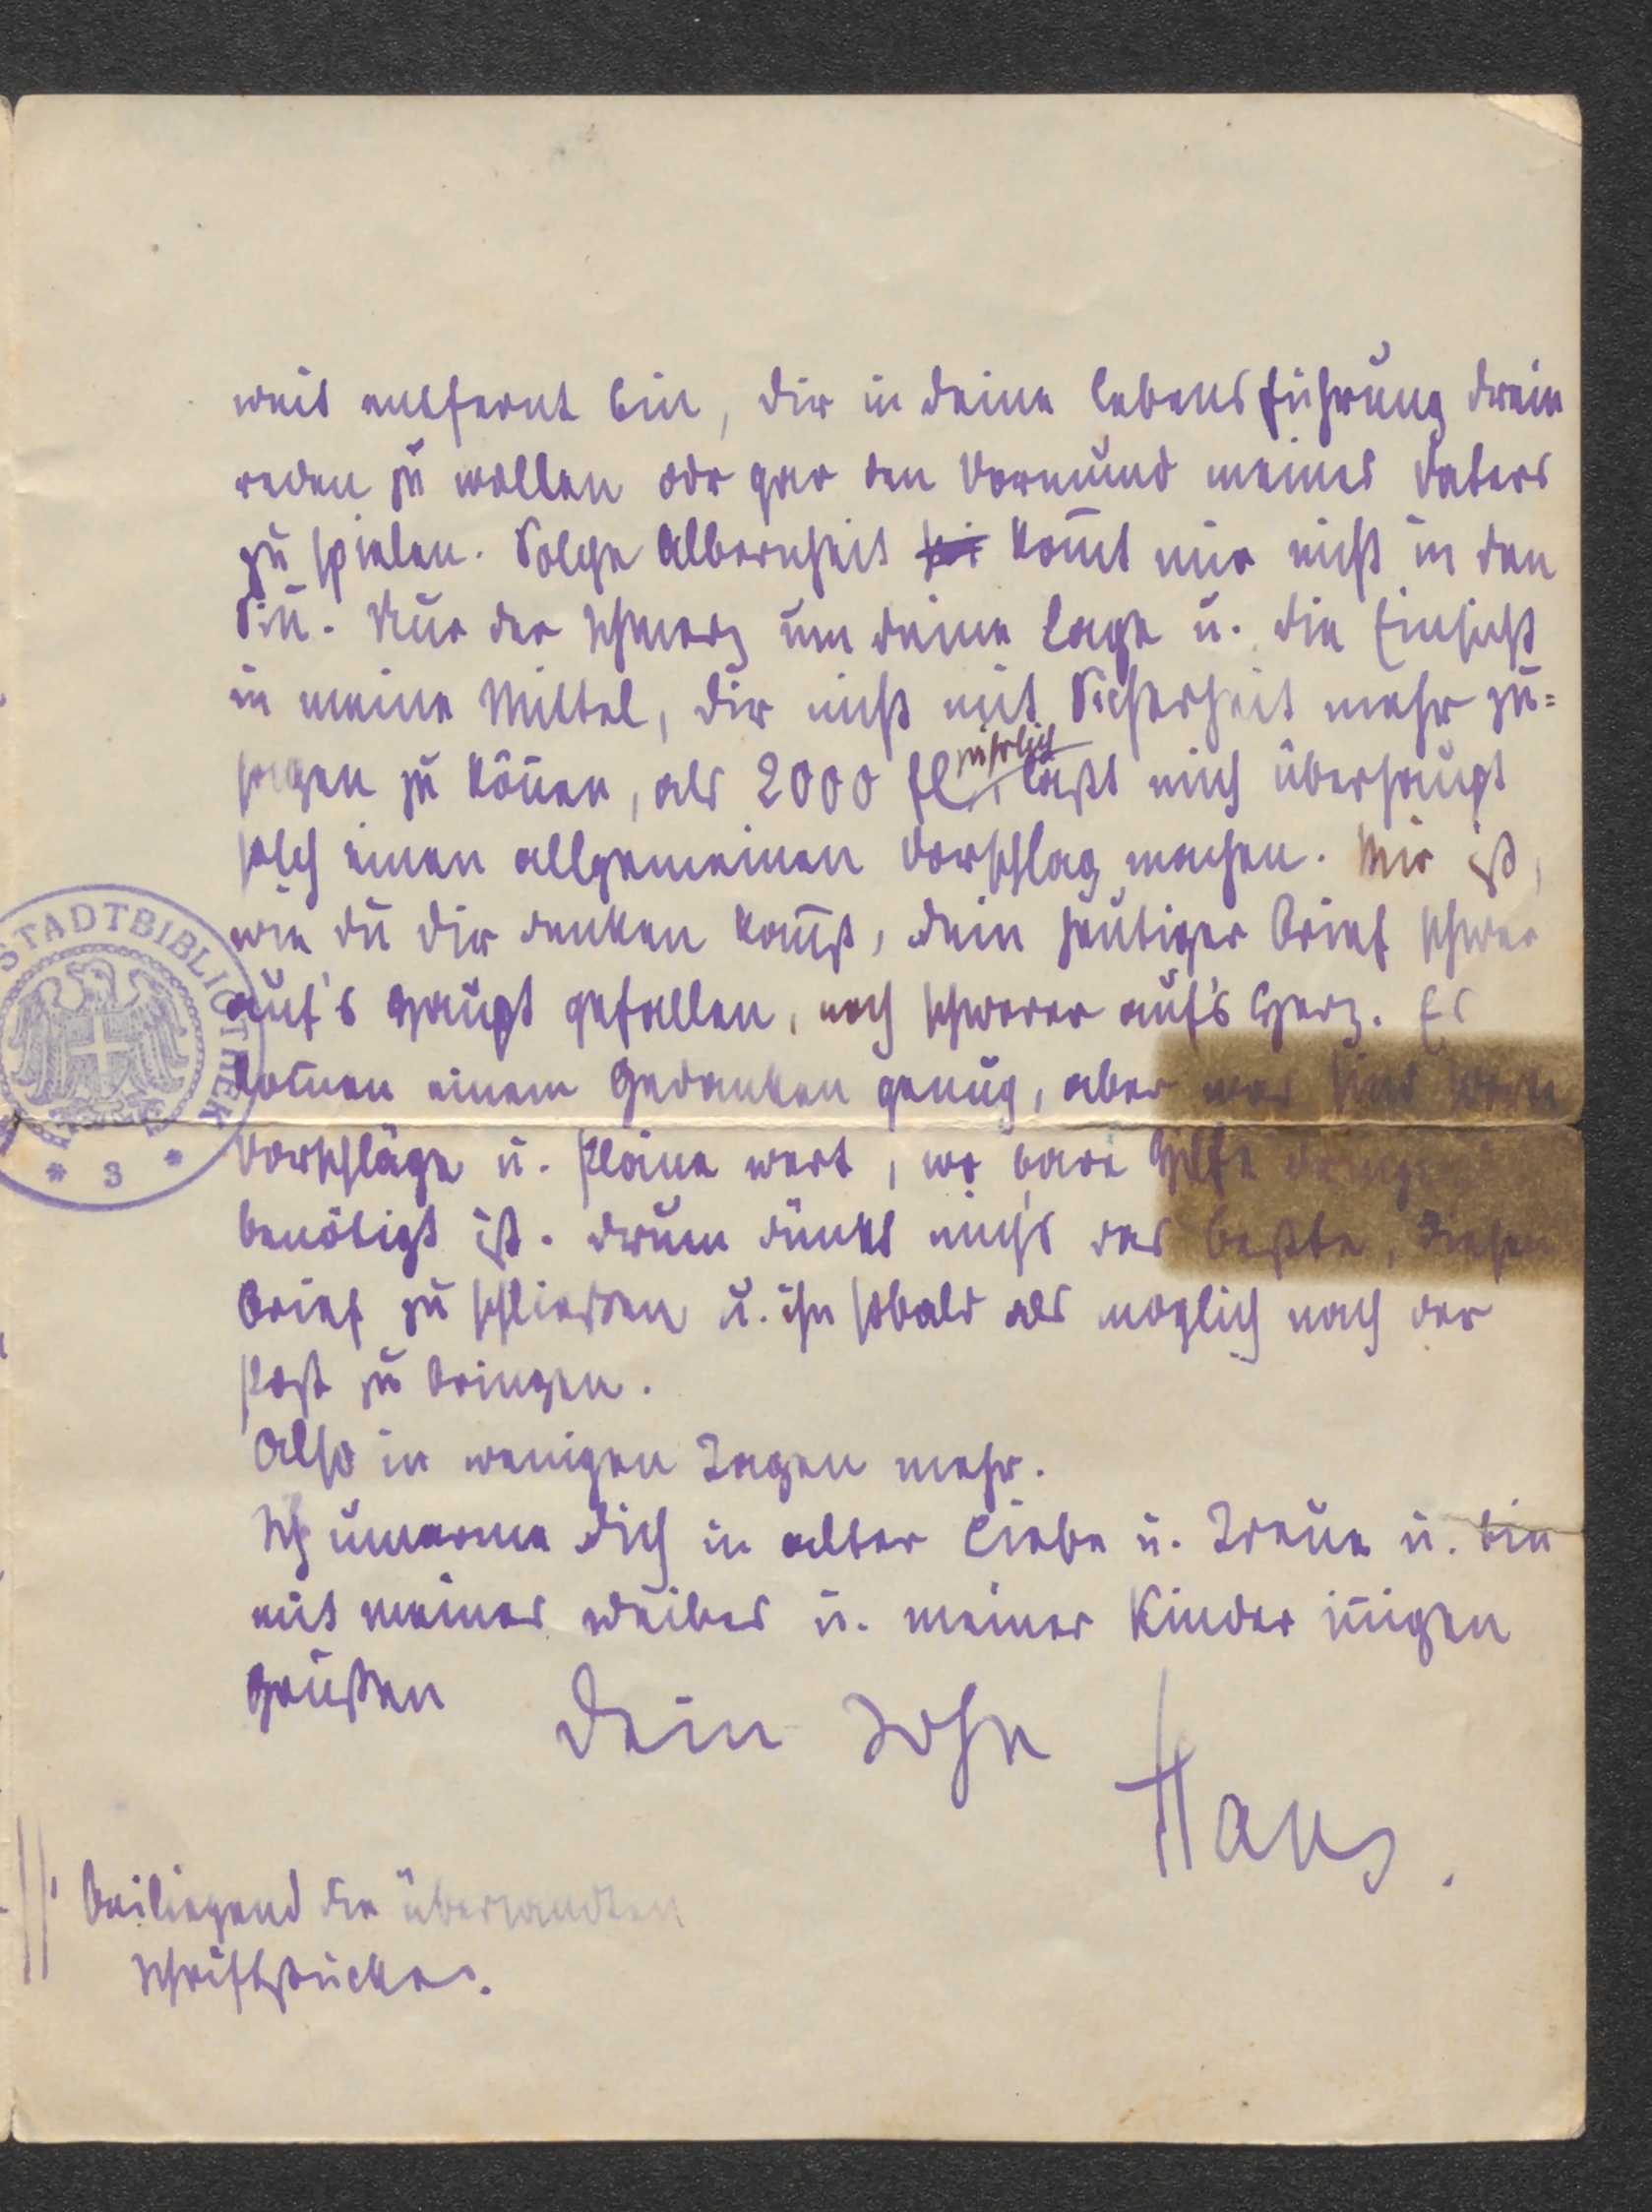 weit entfernt bin, dir in deine Lebensführung drein
reden zu wollen odr gar den Vormund meines Vaters
zu spielen. Solche Albernheit kom̄t mir nicht in den
Sin̄. Nur der Schmerz um deine Lage u. die Einsicht
in meine Mittel, dir nicht mit Sicherheit mehr zu=
sagen zu kön̄en, als 2000 fl jährlich läßt mich überhaupt
solch einen allgemeinen Vorschlag machen. Mir ist,
wie du dir denken kan̄st, dein heutiger Brief schwer
auf's Haupt gefallen, noch schwerer auf's Herz. Es
kom̄en einem Gedanken genug, aber was sind
Vorschläge u. Pläne wert, wo bare Hilfe dringend
benötigt ist. Drum dünkt mich's das beßte, diesen
Brief zu schließen u. ihn sobald als möglich nach der
Post zu bringen.
Also in wenigen Tagen mehr.
Ich umarme dich in alter Liebe u. Treue u. bin
mit meines Weibes u. meiner Kinder in̄igen
Grüßen Dein Sohn
Hans.
Beiliegend die übersandten
Schriftstücke.
STADTBIBLIOTHEK
* 3 *